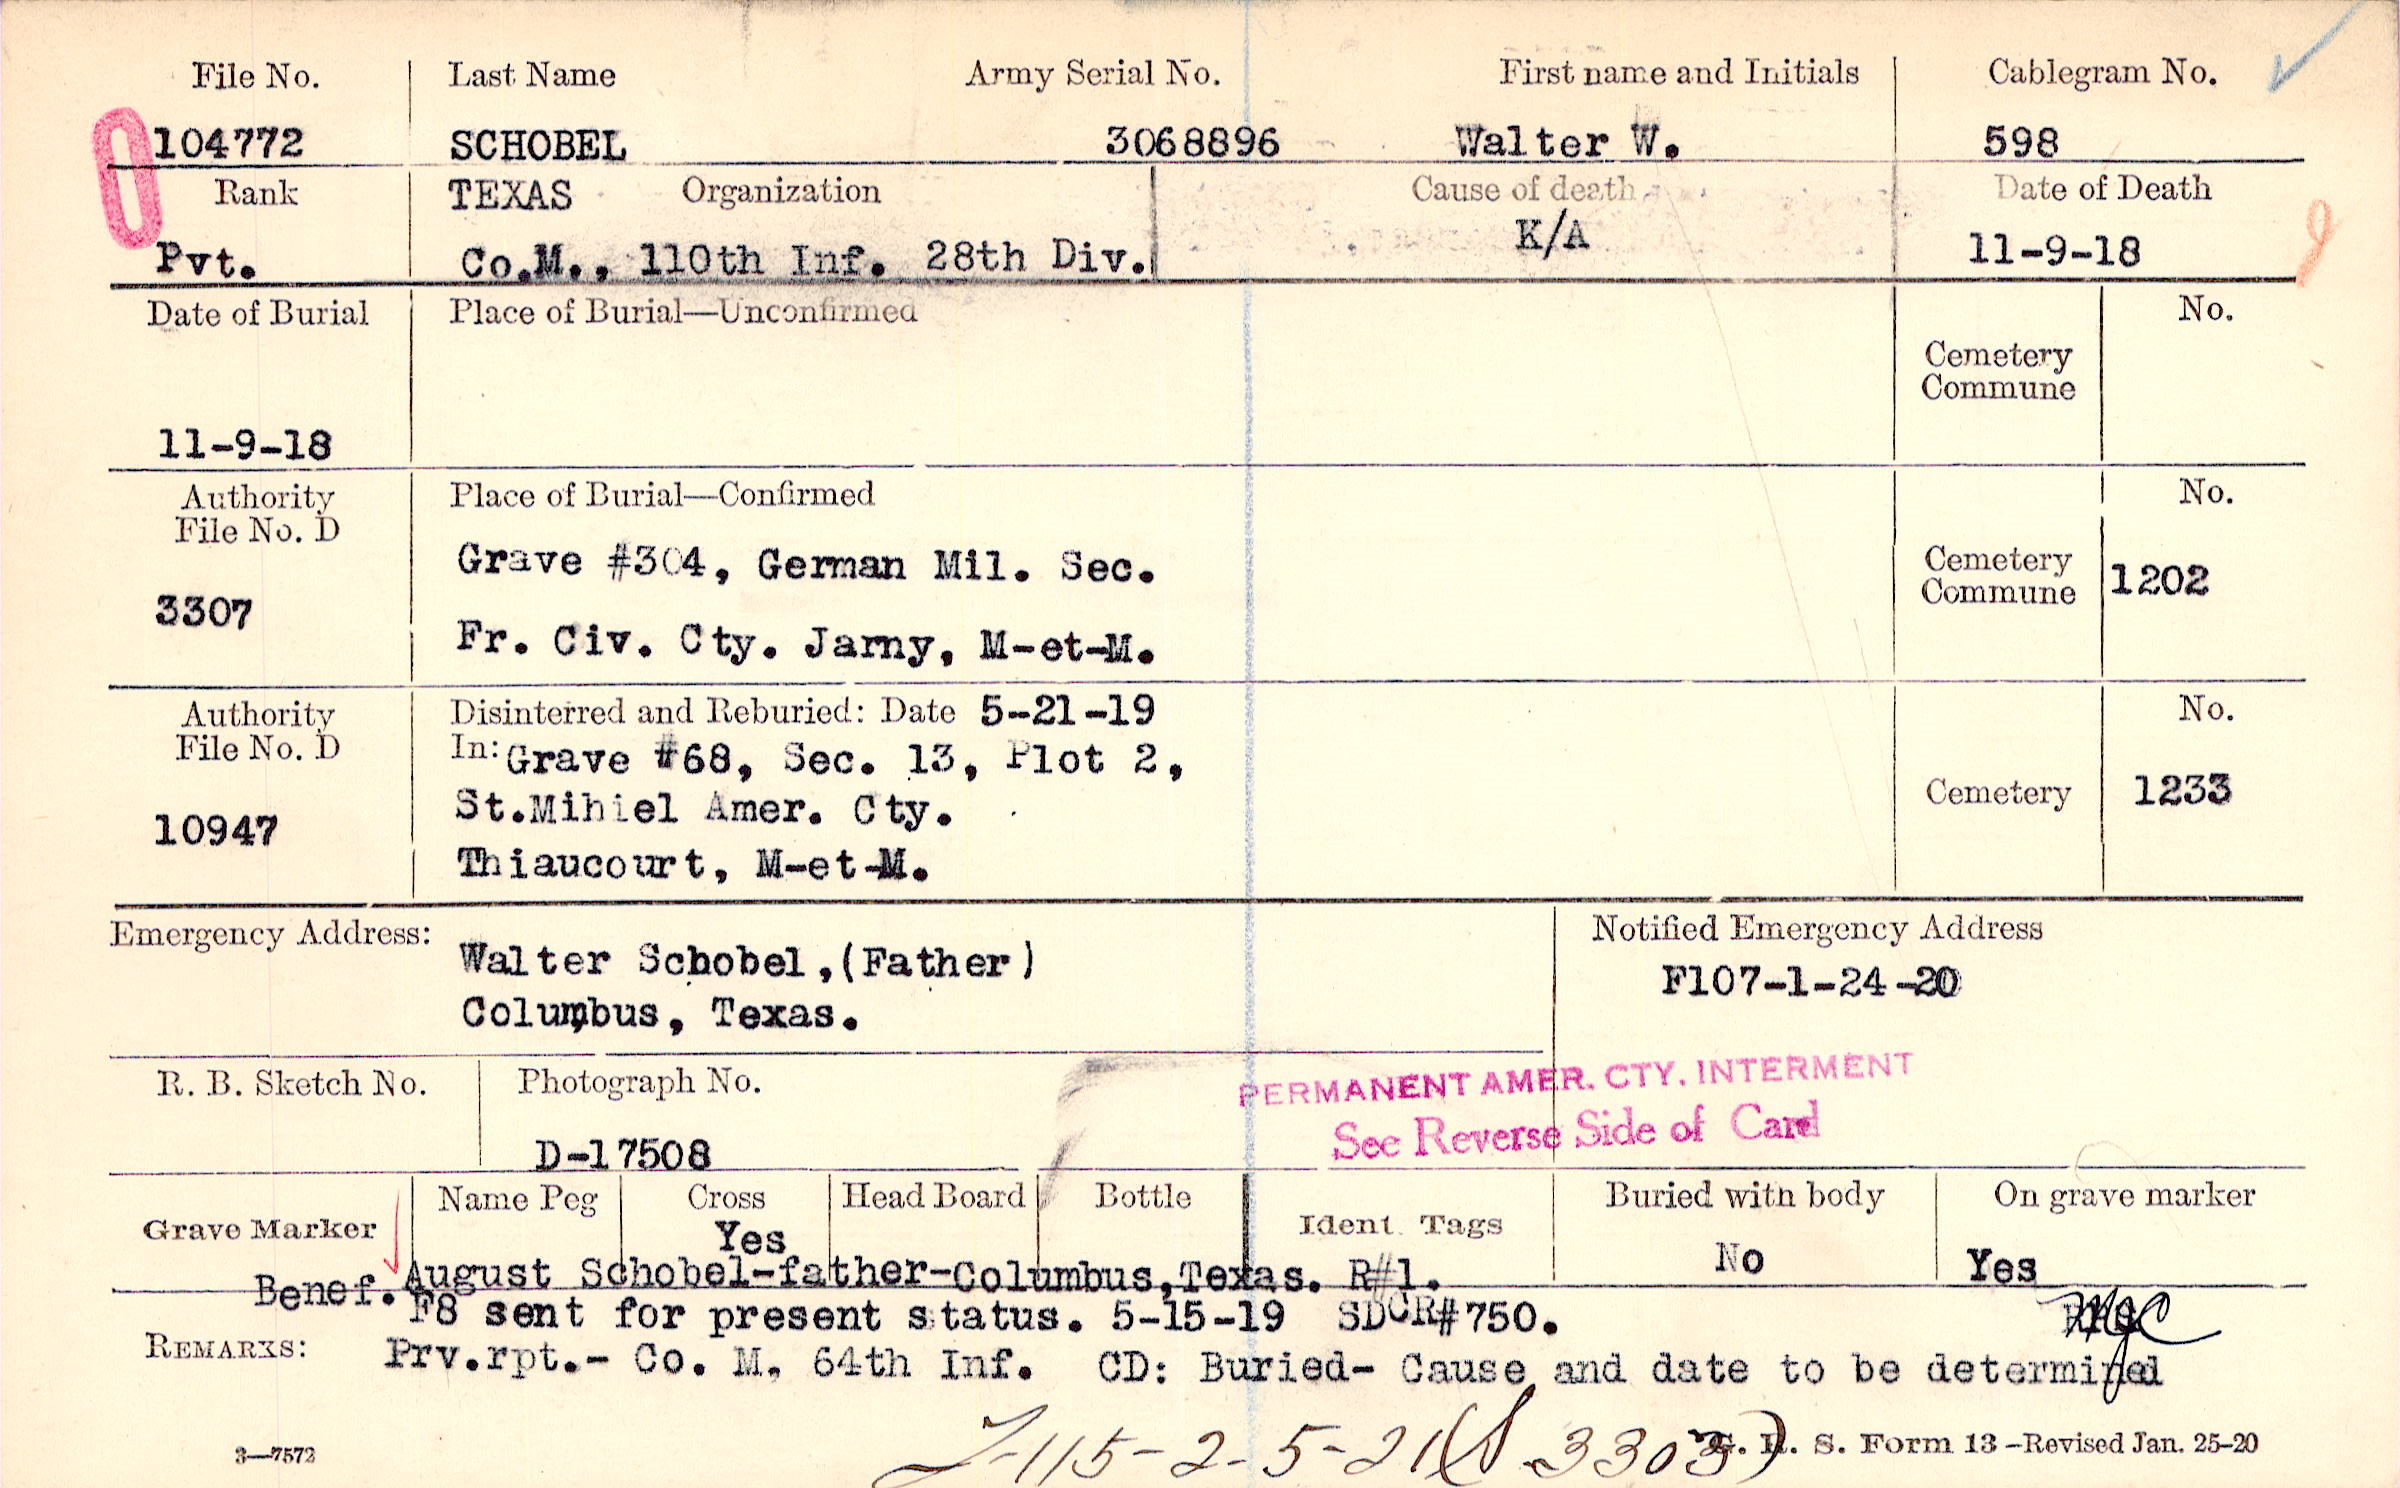 File No. Last Name Army Serial No. First name and Initials Cablegram No.
104772 SCHOBEL 3068896 Walter W. 598
Rank TEXAS Organization Cause of death Date of Death
Pvt. Co.M., 110th Inf. 28th Div. K/A 11-9-18
Date of Burial Place of Burial—Unconfirmed No.
Cemetery
Commune
11-9-18
Authority Place of Burial—Confirmed No.
File No. D
3307
Grave #304, German Mil. Sec.
Fr. Civ. Cty. Jarny, M-et-M.
Cemetery
Commune 1202
Authority Disinterred and Reburied: Date 5-21-19 No.
File No. D In: Grave #68, Sec. 13, Plot 2,
10947 St.Mihiel Amer. Cty. Cemetery 1233
Thiaucourt, M-et-M.
Emergency Address: Notified Emergency Address
Walter Schobel,(Father) F107-1-24-20
Columbus, Texas.
R. B. Sketch No. Photograph No. PERMANENT AMER. CTY. INTERMENT
See Reverse Side of Card
D-17508
Grave Marker Name Peg Cross Head Board Bottle Ident. Tags Buried with body On grave marker
Yes No Yes
Benef. August Schobel-father-Columbus,Texas. R#1.
F8 sent for present status. 5-15-19 SDCR#750.
REMARKS: Prv.rpt.- Co. M. 64th Inf. CD: Buried- Cause and date to be determined
115-2-5-21 (S 3303)
3—7572 G. R. S. Form 13 -Revised Jan. 25-20